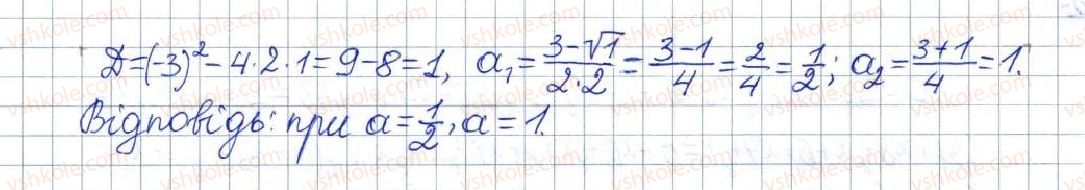 D=(-3)²-4·2·1=9-8=1, a₁=(3-√1)/(2·2)=(3-1)/4=2/4=1/2; a₂=(3+1)/4=1.
Відповідь: при a=1/2, a=1.
vshkole.com